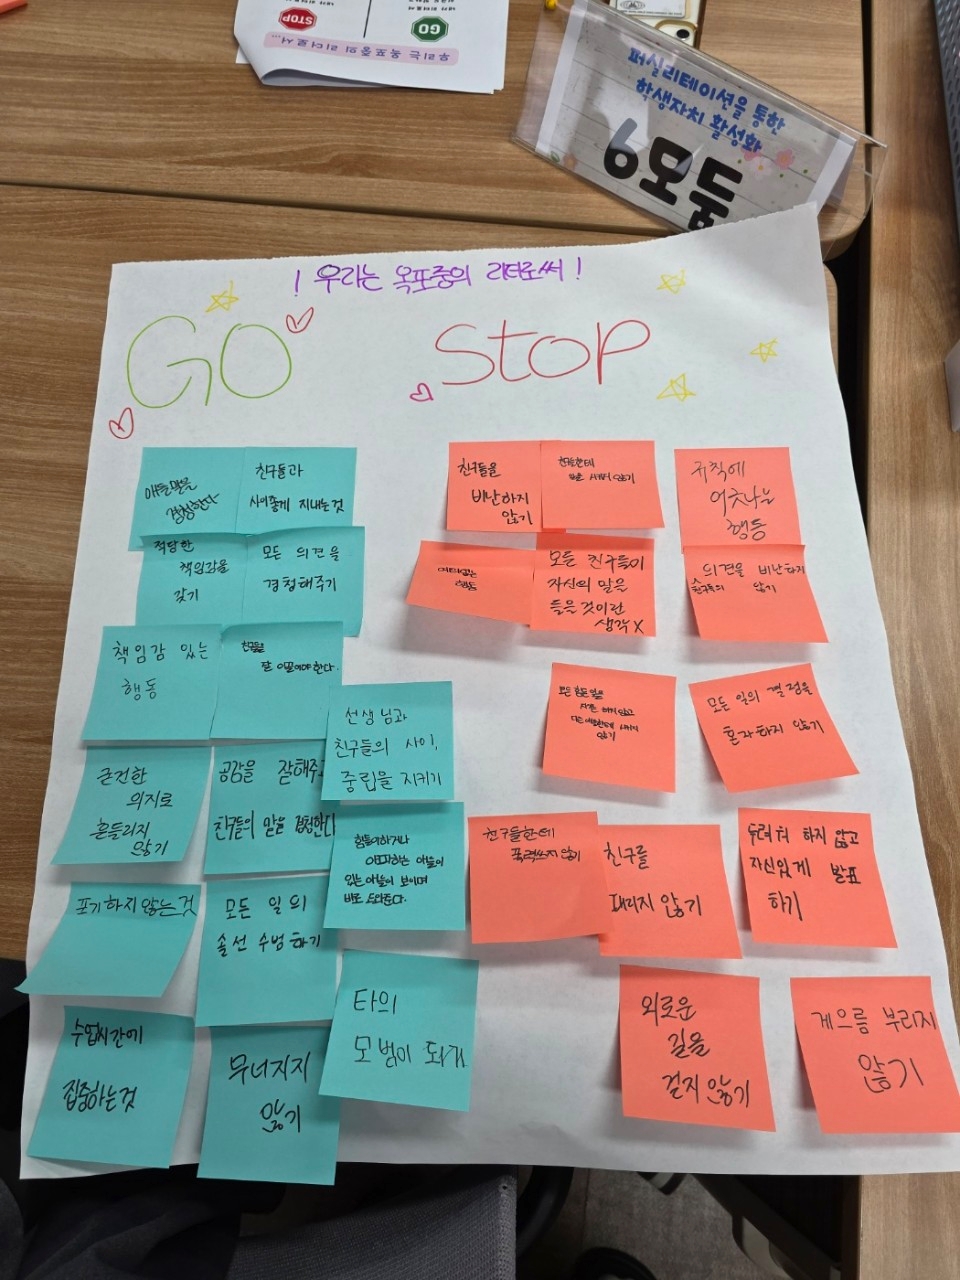 STOP
GO
우리는 목포중의 리더로서...
퍼실리테이션을 통한
학생자치 활성화
6모둠
! 우리는 목포중의 리더로써 !
GO
STOP
애들말을
경청한다
친구들과
사이좋게 지내는것
적당한
책임감을
갖기
모든 의견을
경청해주기
책임감 있는
행동
친구들을
잘 이끌어야한다.
선생님과
친구들의 사이,
중립을 지키기
굳건한
의지로
흔들리지
않기
공감을 잘해주고
친구들의 말을 경청한다
힘들어하거나
아파하는 아들이
있는 아들이 보이며
바로 도와준다.
포기하지않는것
모든 일의
솔선수범하기
타의
모범이 되기
수업시간에
집중하는것
무너지지
않기
친구들을
비난하지
않기
친구한테
시키지 않기
규칙에
어긋나는
행동
행동
모든 친구들이
자신의 말을
들을것이란
생각X
의견을 비난하지
친구들의 않기
모든 힘든일을
자신은 하지 않고
다른애들한테 시키지
않기
모든 일의 결정을
혼자하지 않기
친구들한테
폭력쓰지않기
친구를
때리지 않기
두려워 하지 않고
자신있게 발표
하기
외로운
길을
걷지않기
게으름 부리지
않기